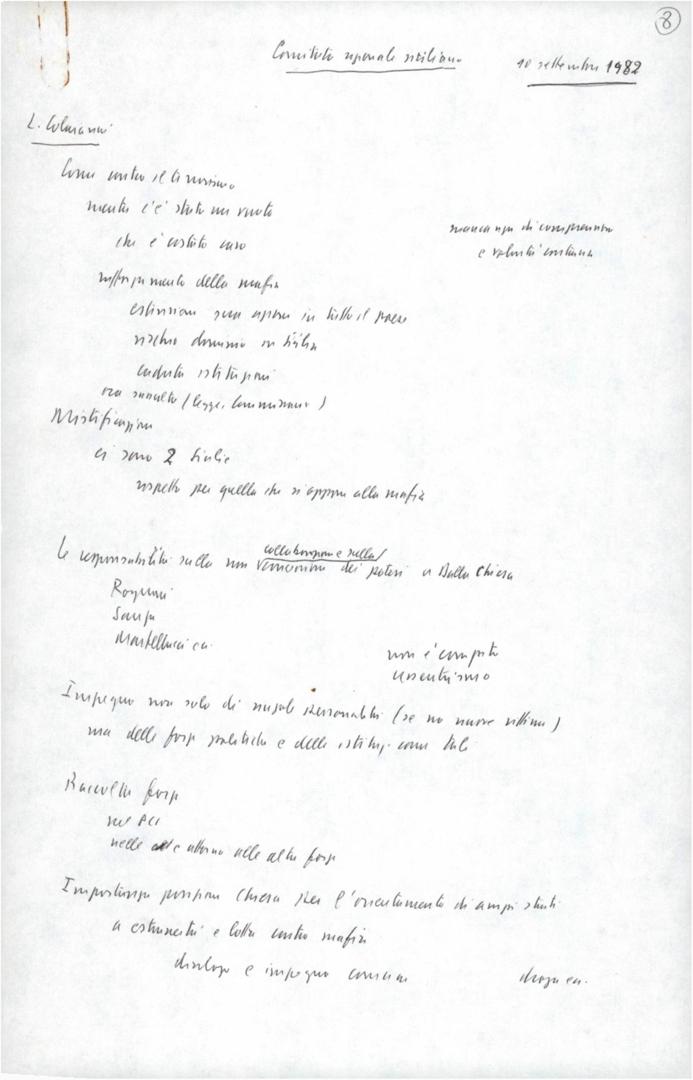 8
Comitato regionale siciliano
10 settembre 1982
L. Colajanni
Come contro il terrorismo
mentre c'è stato un vuoto
che è costato caro
mancanza di comprensione
e volontà continua
rafforzamento della mafia
estensione sua azione in tutto il paese
rischio dominio in Sicilia
caduta istituzioni
ora risveglio (legge, commissione)
Mistificazione
ci sono 2 Sicilie
rispetto per quella che si oppone alla mafia
Le responsabilità sulla non collaborazione e sulla
concessione dei poteri a Dalla Chiesa
Rognoni
Martellucci ecc.
non è compito
Impegno non solo di singole personalità (se no nuove vittime)
ma delle forze politiche e delle istituz. come tali
Raccolta forze
nel PCI
nelle e attorno alle altre forze
Importanza posizione Chiesa per l'orientamento di ampi strati
a estraneità e lotta contro mafia
dialogo e impegno comune
droga ecc.